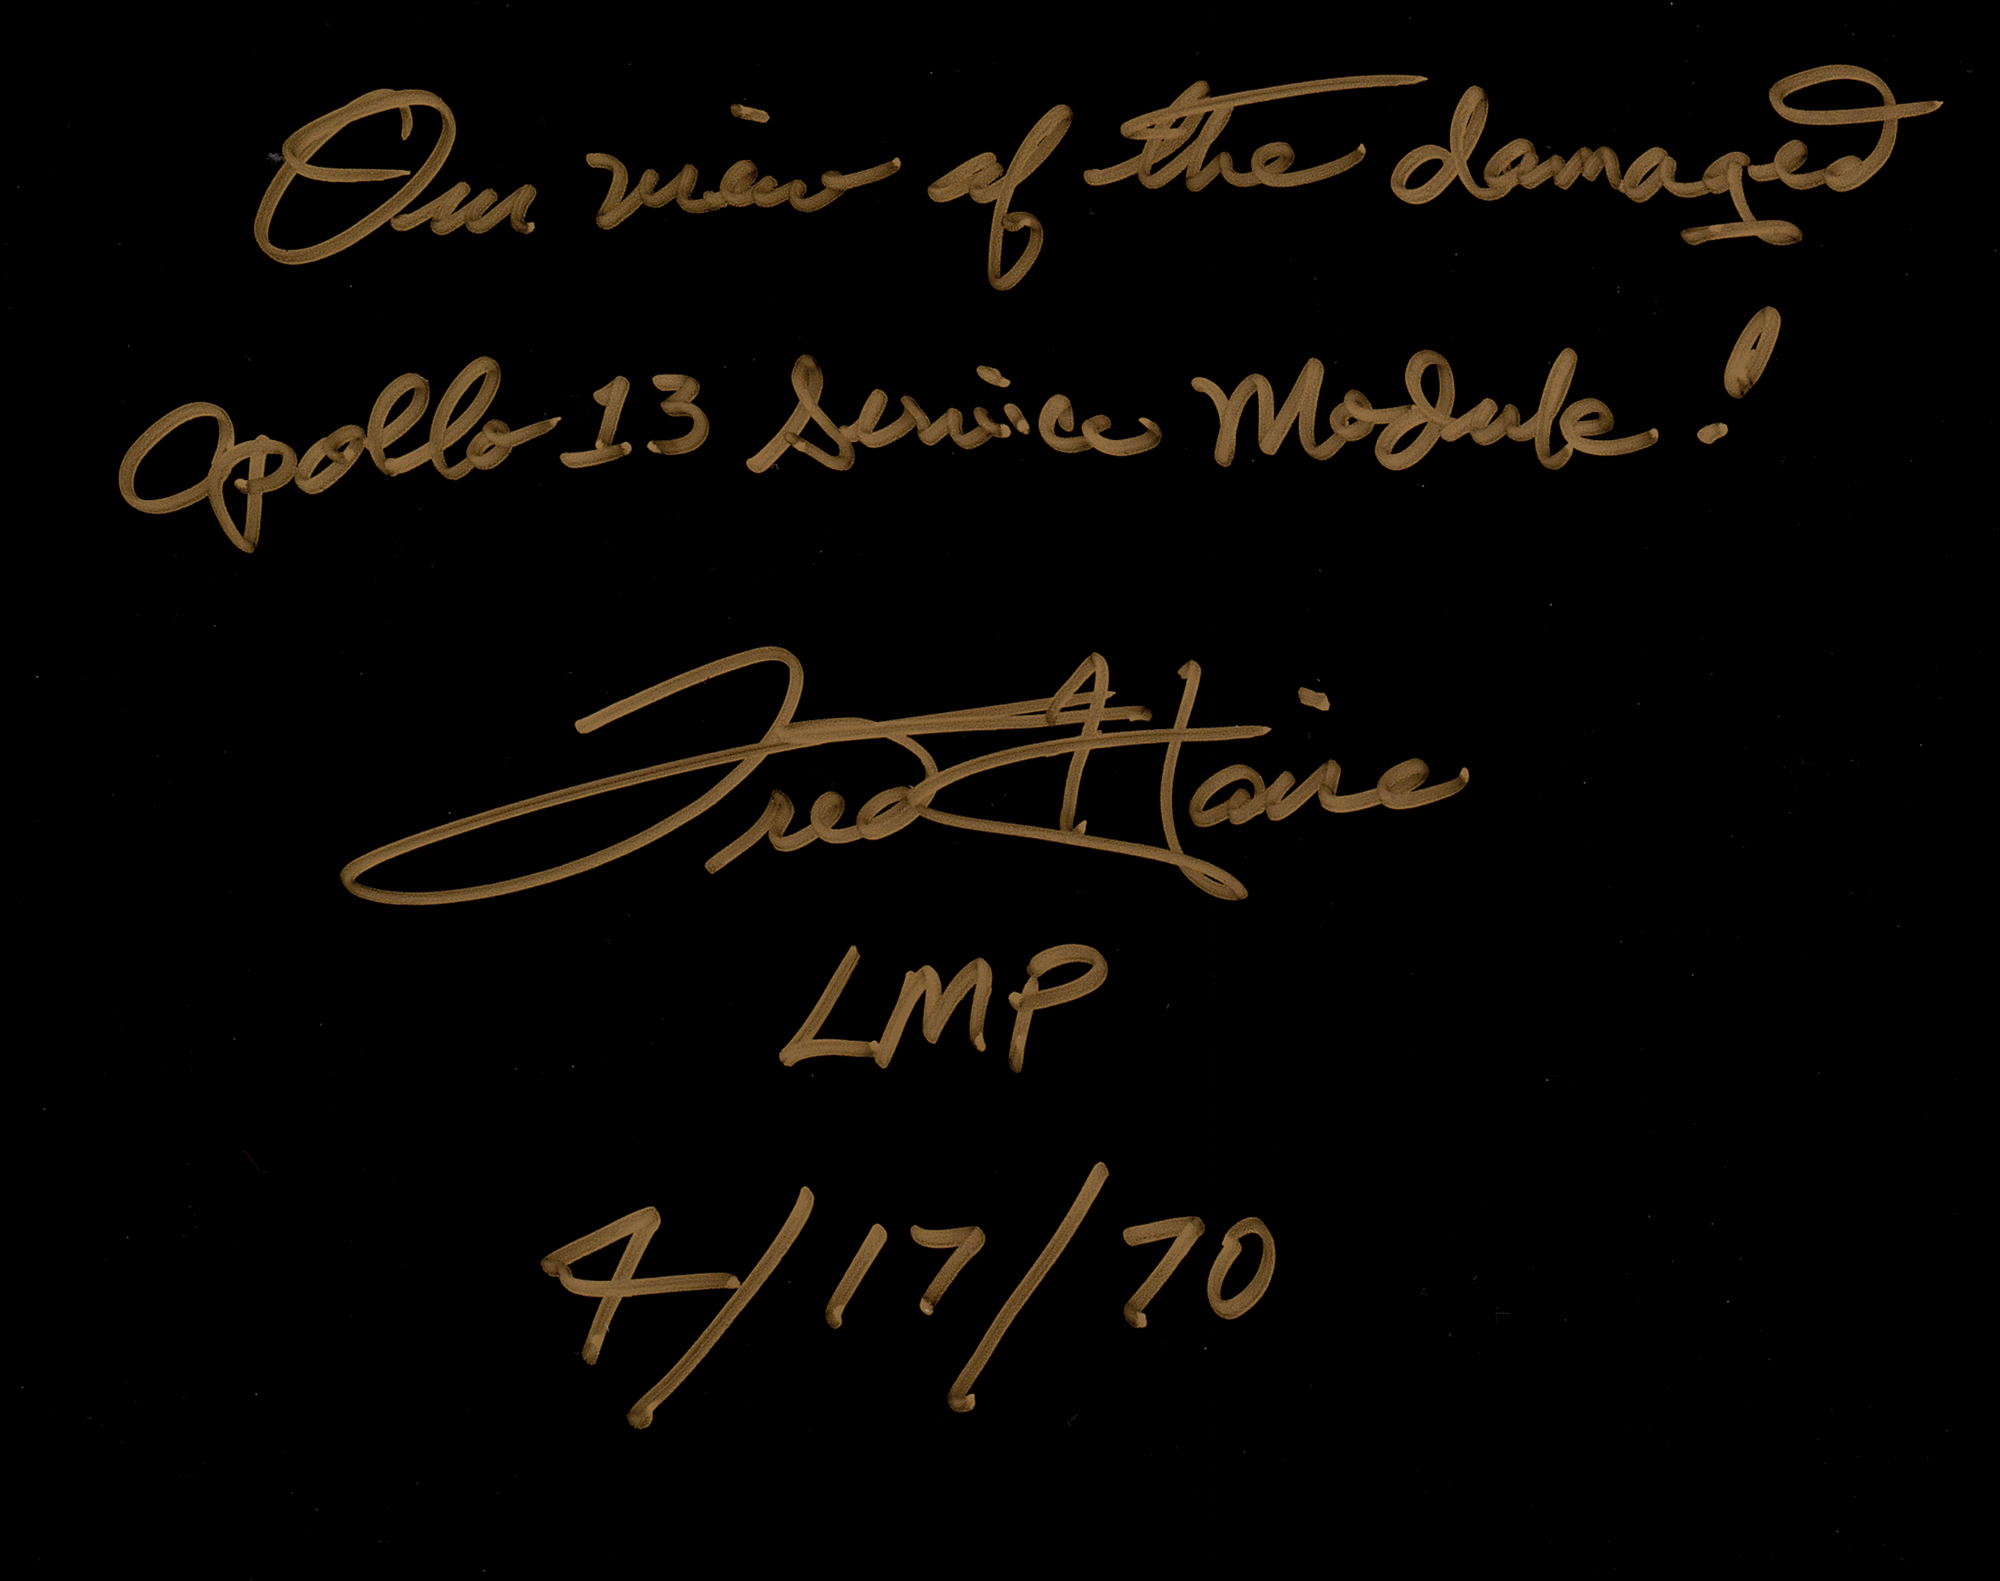 Our view of the damaged
Apollo 13 Service Module!
Fred Haise
LMP
4/17/70